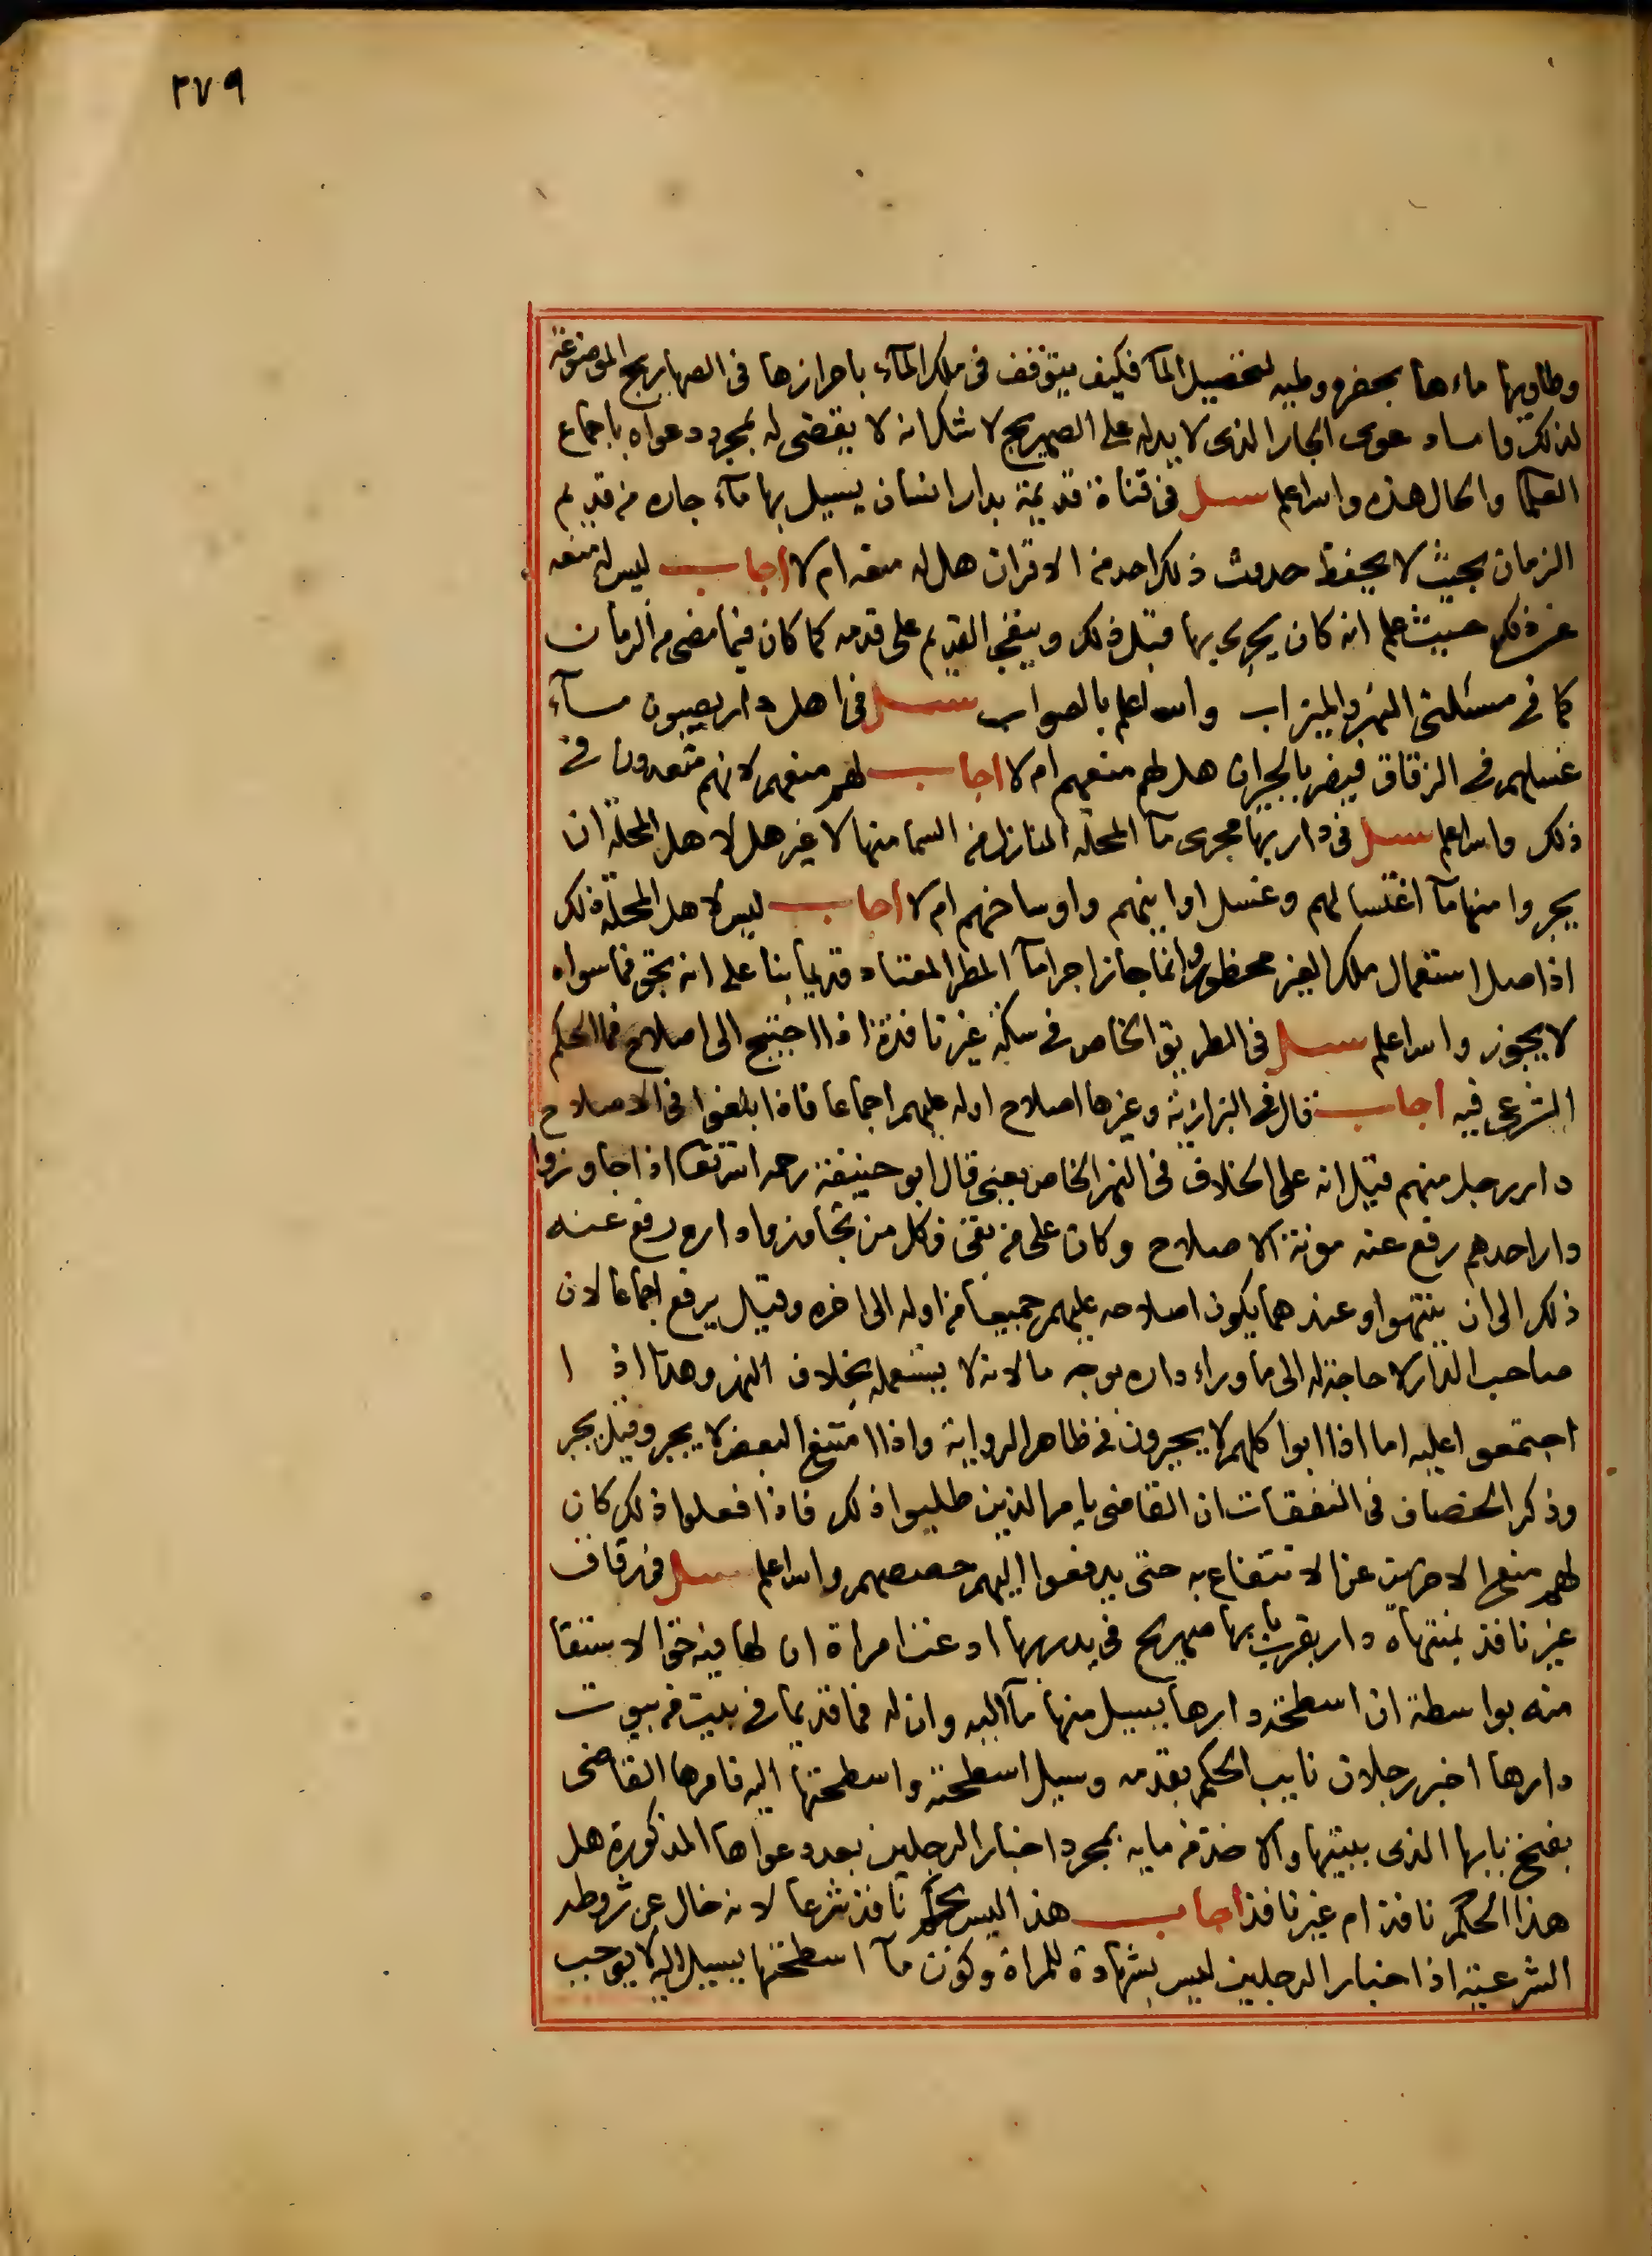 ٢٧٩
وطاويها ماءها بحفره وطيه لتحصيل المآ فكيف يتوقف فى ملك المآء باحرازها فى الصهاريج الموضوعة
لذلك واما دعوى الجار الذى لا يد له على الصهريج لا شك انه لا يقضى له بمجرد دعواه باجماع
العلمآ والحال هذه والله اعلم سئل فى قناة قديمة بدار انسان يسيل بها مآء جاره من قديم
الزمان بحيث لا يحفظ حدوث ذلك احد من الاقران هل له منعه ام لا اجاب ليس له منعه
عن ذلك حيث علم انه كان يجرى بها قبل ذلك ويبقى القديم على قدمه كما كان فيما مضى من الزمان
كما فى مسئلتى النهر والميزاب والله اعلم بالصواب سئل فى اهل دار يصبون مآء
غسلهم فى الزقاق فيضر بالجيران هل لهم منعهم ام لا اجاب لهم منعهم لانهم متعدون فى
ذلك والله اعلم سئل فى دار بها مجرى مآ المحلة النازل من السما منها لا غير هل لاهل المحلة ان
يجروا منها مآ اغتسالهم وغسل اوانيهم واوساخهم ام لا اجاب ليس لاهل المحلة ذلك
اذ اصل استعمال ملك الغير محظور وانما جاز اجرا مآ المطر المعتاد قديما بنا على انه بحق فما سواه
لا يجوز والله اعلم سئل فى الطريق الخاص فى سكة غير نافذة اذا احتيج الى اصلاح فما الحكم
الشرعى فيه اجاب قال فى البزازية وغيرها اصلاح اوله عليهم اجماعا فاذا بلغوا فى الاصلاح
دار رجل منهم قيل انه على الخلاف فى النهر الخاص يعنى قال ابو حنيفة رحمه الله تعالى اذا جاوزوا
دار احدهم رفع عنه مونة الاصلاح وكان على من بقى فكل من تجاوزوا داره رفع عنه
ذلك الى ان ينتهوا وعندهما يكون اصلاحه عليهم جميعا من اوله الى اخره وقيل يرفع اجماعا لان
صاحب الدار لا حاجة له الى ما وراء داره بوجه ما لانه لا يستعمله بخلاف النهر وهذا اذ ا
اجتمعوا عليه اما اذا ابوا كلهم لا يجبرون فى ظاهر الرواية واذا امتنع البعض لا يجبر وقيل يجبر
وذكر الخصاف فى النفقات ان القاضى يامر الذين طلبوا ذلك فاذا فعلوا ذلك كان
لهم منع الاخرين عن الانتفاع به حتى يدفعوا اليهم حصصهم والله اعلم سئل فى زقاق
غير نافذ بمنتهاه دار بقرب بابها صهريج فى يد ربها ادعت امراة ان لها فيه حق الاستقا
منه بواسطة ان اسطحة دارها يسيل منها مآ اليه وان له فما قديما فى بيت من بيوت
دارها اخبر رجلان نايب الحكم بقدمه وسيل اسطحته واسطحتها اليه فامرها القاضى
بفتح بابها الذى ببيتها والاخذ من مايه بمجرد اخبار الرجلين بعد دعواها المذكورة هل
هذا الحكم نافذ ام غير نافذ اجاب هذا ليس بحكم نافذ شرعا لانه خال عن شروطه
الشرعية اذ اخبار الرجلين ليس بشهادة للمراة وكون مآ اسطحتها يسيل اليه لا يوجب